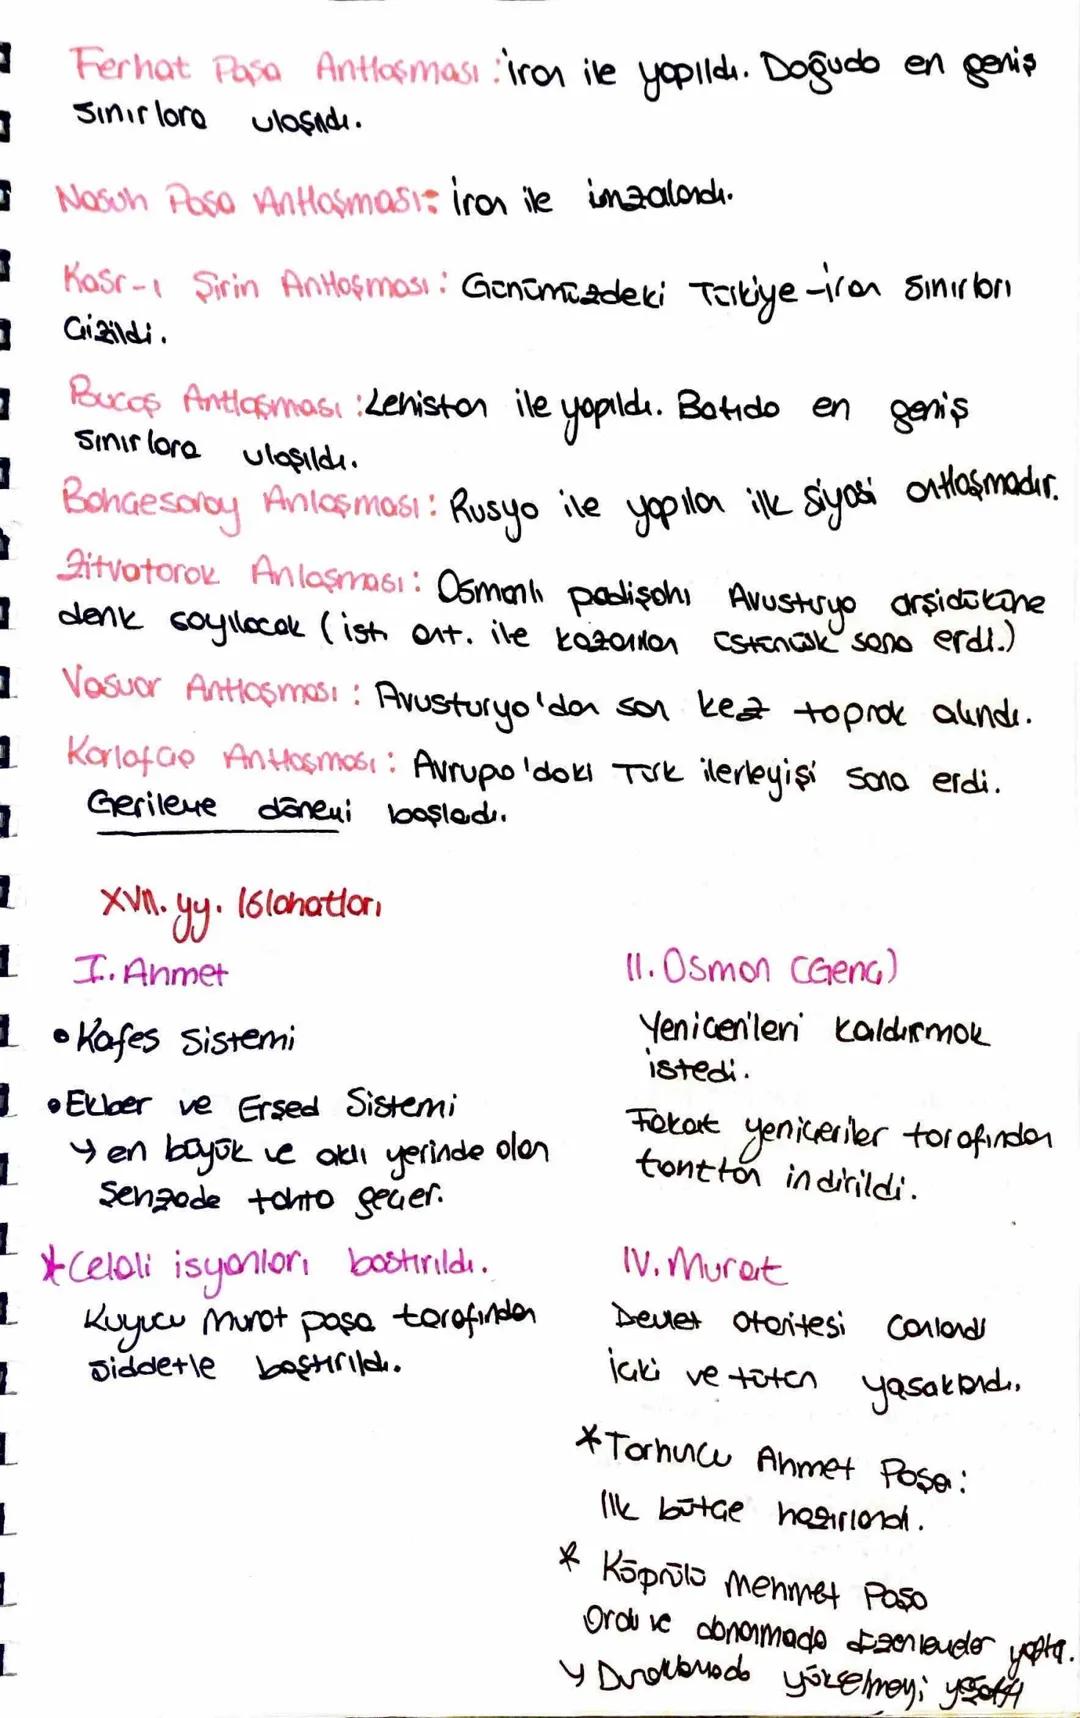 Ferhat Paşa Antlaşması : İran ile yapıldı. Doğuda en geniş
sınırlara ulaşıldı.
Nasuh Paşa Antlaşması: İran ile imzalandı.
Kasr-ı Şirin Antlaşması : Günümüzdeki Türkiye-İran sınırları
Çizildi.
Bucaş Antlaşması : Lehistan ile yapıldı. Batıda en geniş
sınırlara ulaşıldı.
Bahçesaray Anlaşması : Rusya ile yapılan ilk siyasi antlaşmadır.
Zitvatorok Anlaşması : Osmanlı padişahı Avusturya arşidüküne
denk sayılacak (ist. ant. ile kazanılan üstünlük sona erdi.)
Vasvar Antlaşması : Avusturya'dan son kez toprak alındı.
Karlofça Antlaşması : Avrupa'daki Türk ilerleyişi sona erdi.
Gerileme dönemi başladı.
XVII. yy. Islahatları
I. Ahmet
• Kafes Sistemi
• Ekber ve Erşed Sistemi
↳ en büyük ve aklı yerinde olan
Şehzade tahta geçer.
* Celali isyanları bastırıldı.
Kuyucu Murat paşa tarafından
Şiddetle bastırıldı.
II. Osman (Genç)
Yeniçerileri kaldırmak
istedi.
Fakat yeniçeriler tarafından
tahttan indirildi.
IV. Murat
Devlet otoritesi canlandı
İçki ve tütün yasaklandı.
* Tarhuncu Ahmet Paşa :
İlk bütçe hazırlandı.
* Köprülü Mehmet Paşa
Ordu ve donanmada düzenlemeler yaptı.
↳ Duraklamada yükselmeyi yaşattı